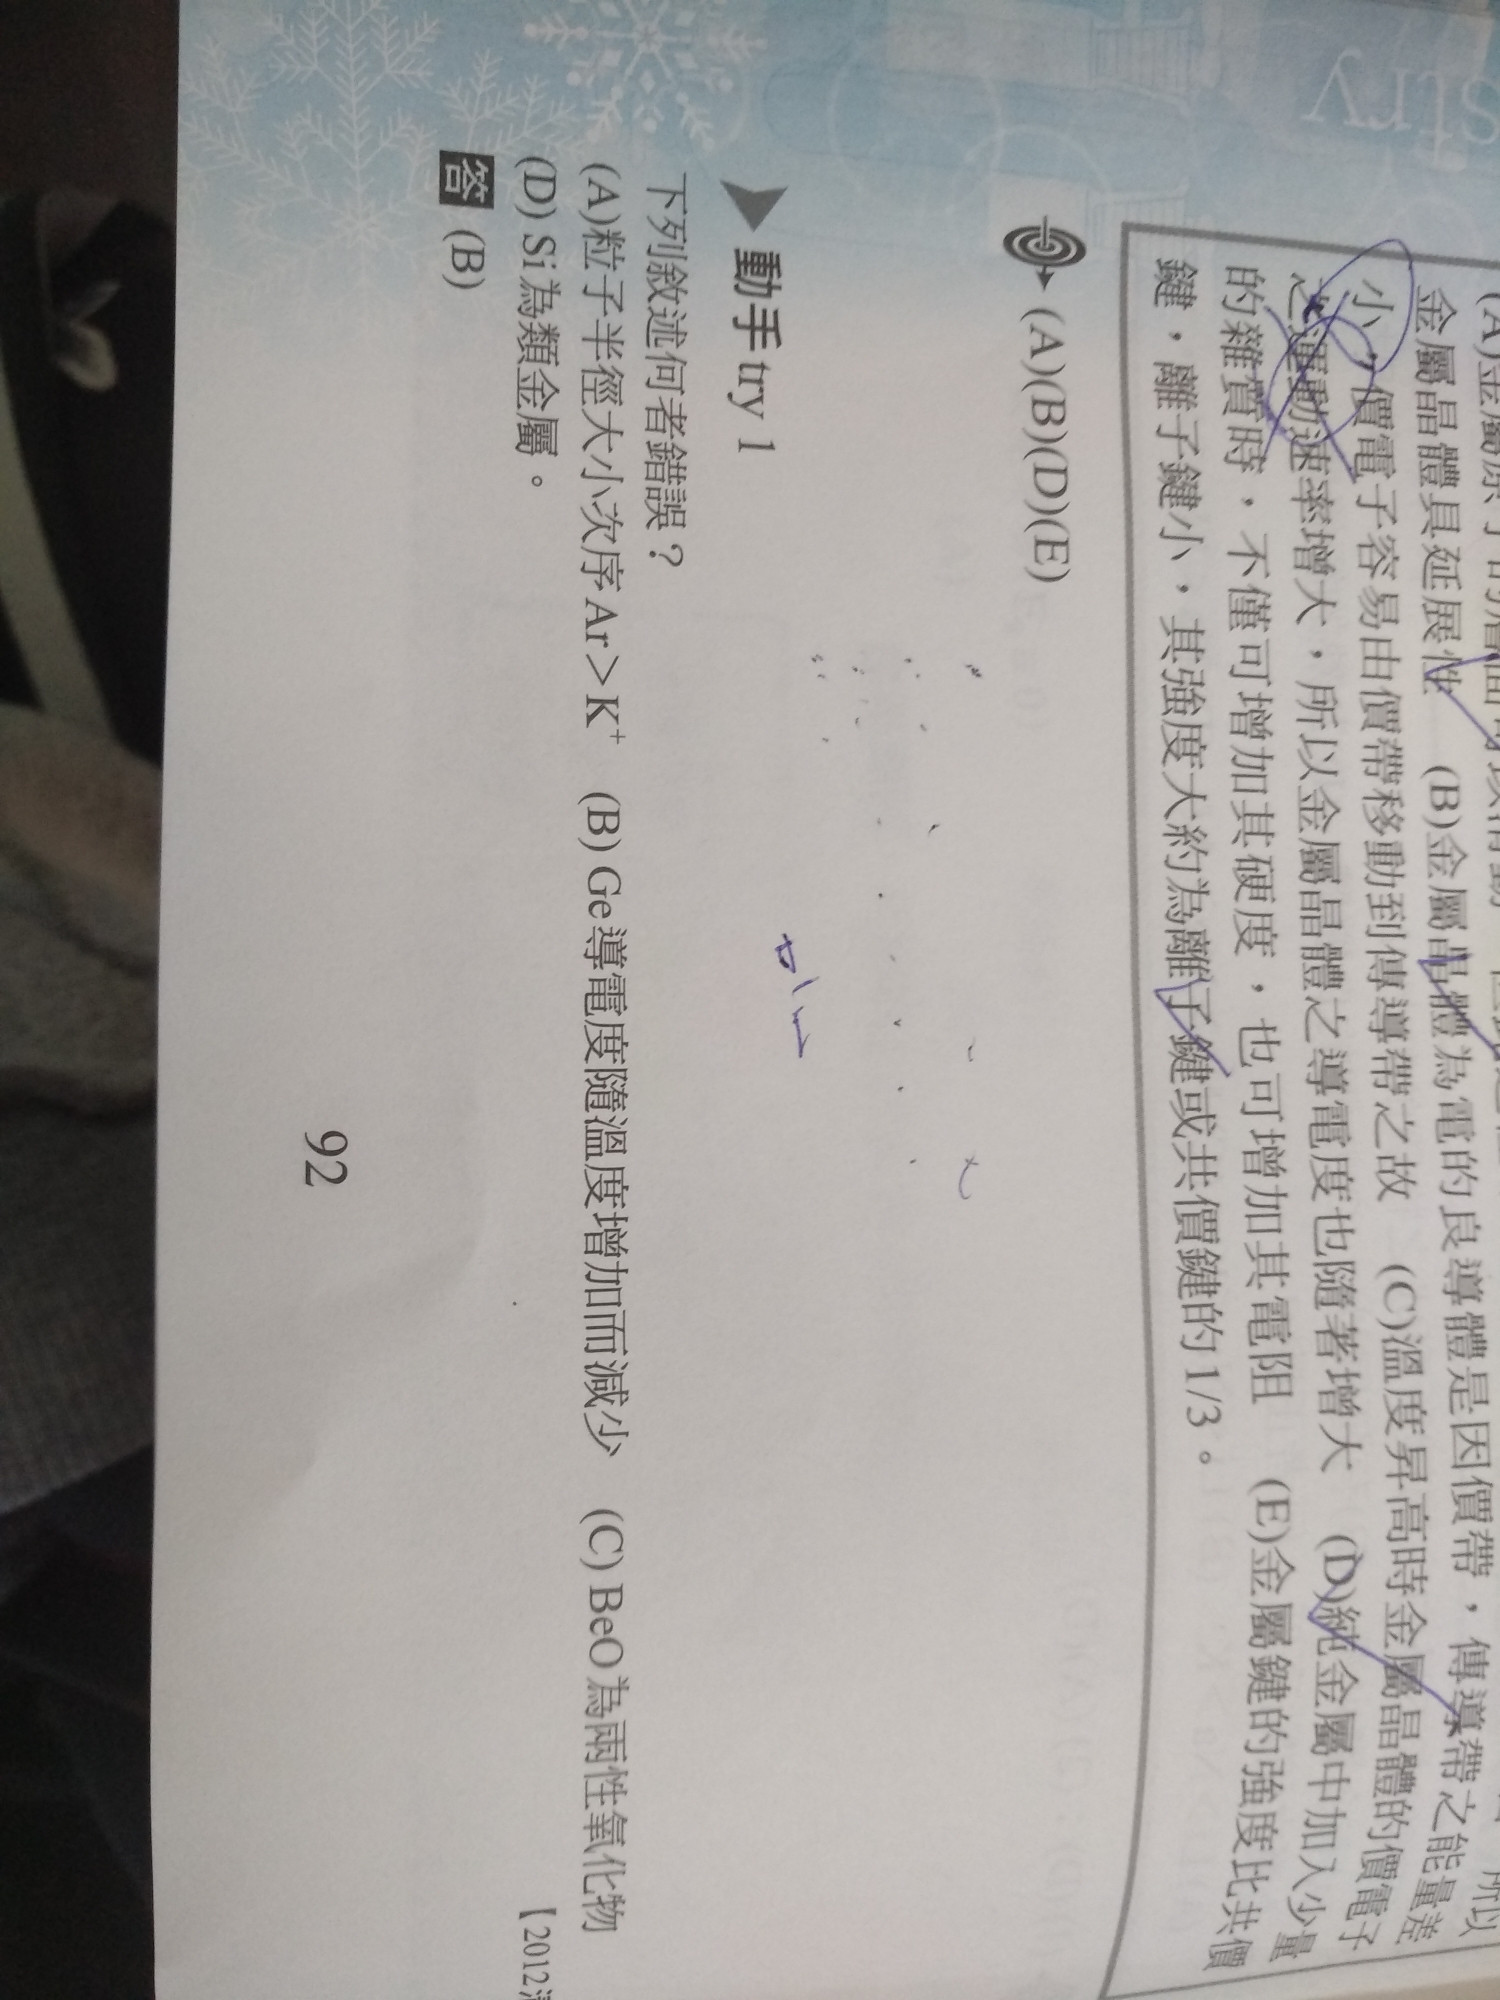 stry
金屬晶體具延展性 (B)金屬晶體為電的良導體是因價帶，傳導帶之能量差
小，價電子容易由價帶移動到傳導帶之故 (C)溫度昇高時金屬晶體的價電子
之運動速率增大，所以金屬晶體之導電度也隨著增大 (D)純金屬中加入少量
的雜質時，不僅可增加其硬度，也可增加其電阻 (E)金屬鍵的強度比共價
鍵，離子鍵小，其強度大約為離子鍵或共價鍵的1/3。
(A)(B)(D)(E)
動手 try 1
下列敘述何者錯誤？
(A)粒子半徑大小次序Ar＞K⁺ (B) Ge導電度隨溫度增加而減少 (C) BeO為兩性氧化物
(D) Si為類金屬。 【2012
答 (B)
92